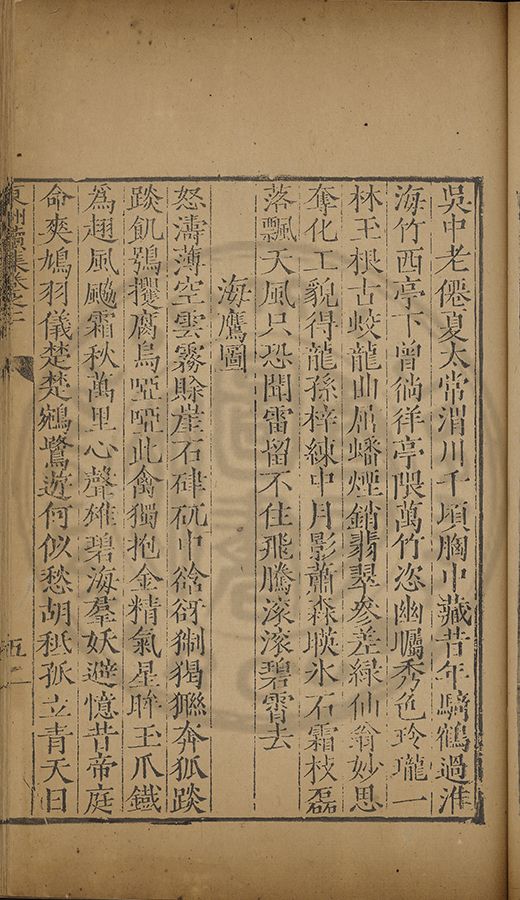 吳中老僊夏太常渭川千頃胸中藏昔年騎鶴過淮
海竹西亭下曾徜徉亭隈萬竹恣幽矚秀色玲瓏一
林玉根古蛟龍曲屈蟠煙銷翡翠參差綠仙翁妙思
奪化工貌得龍孫梓練中月影蕭森暎氷石霜枝磊
落飄天風只恐聞雷留不住飛騰滚滚碧霄去
海鷹圖
怒濤薄空雲霧賒崖石硉矹中谽谺奔狐
飢鴞攫腐烏啞啞此禽獨抱金精氣星眸玉爪鐵
為翅風霜秋萬里心聲雄碧海羣妖避憶昔帝庭
命爽鳩羽儀楚楚鵷鷺遊何似愁胡秖孤立青天日
集卷之二
五